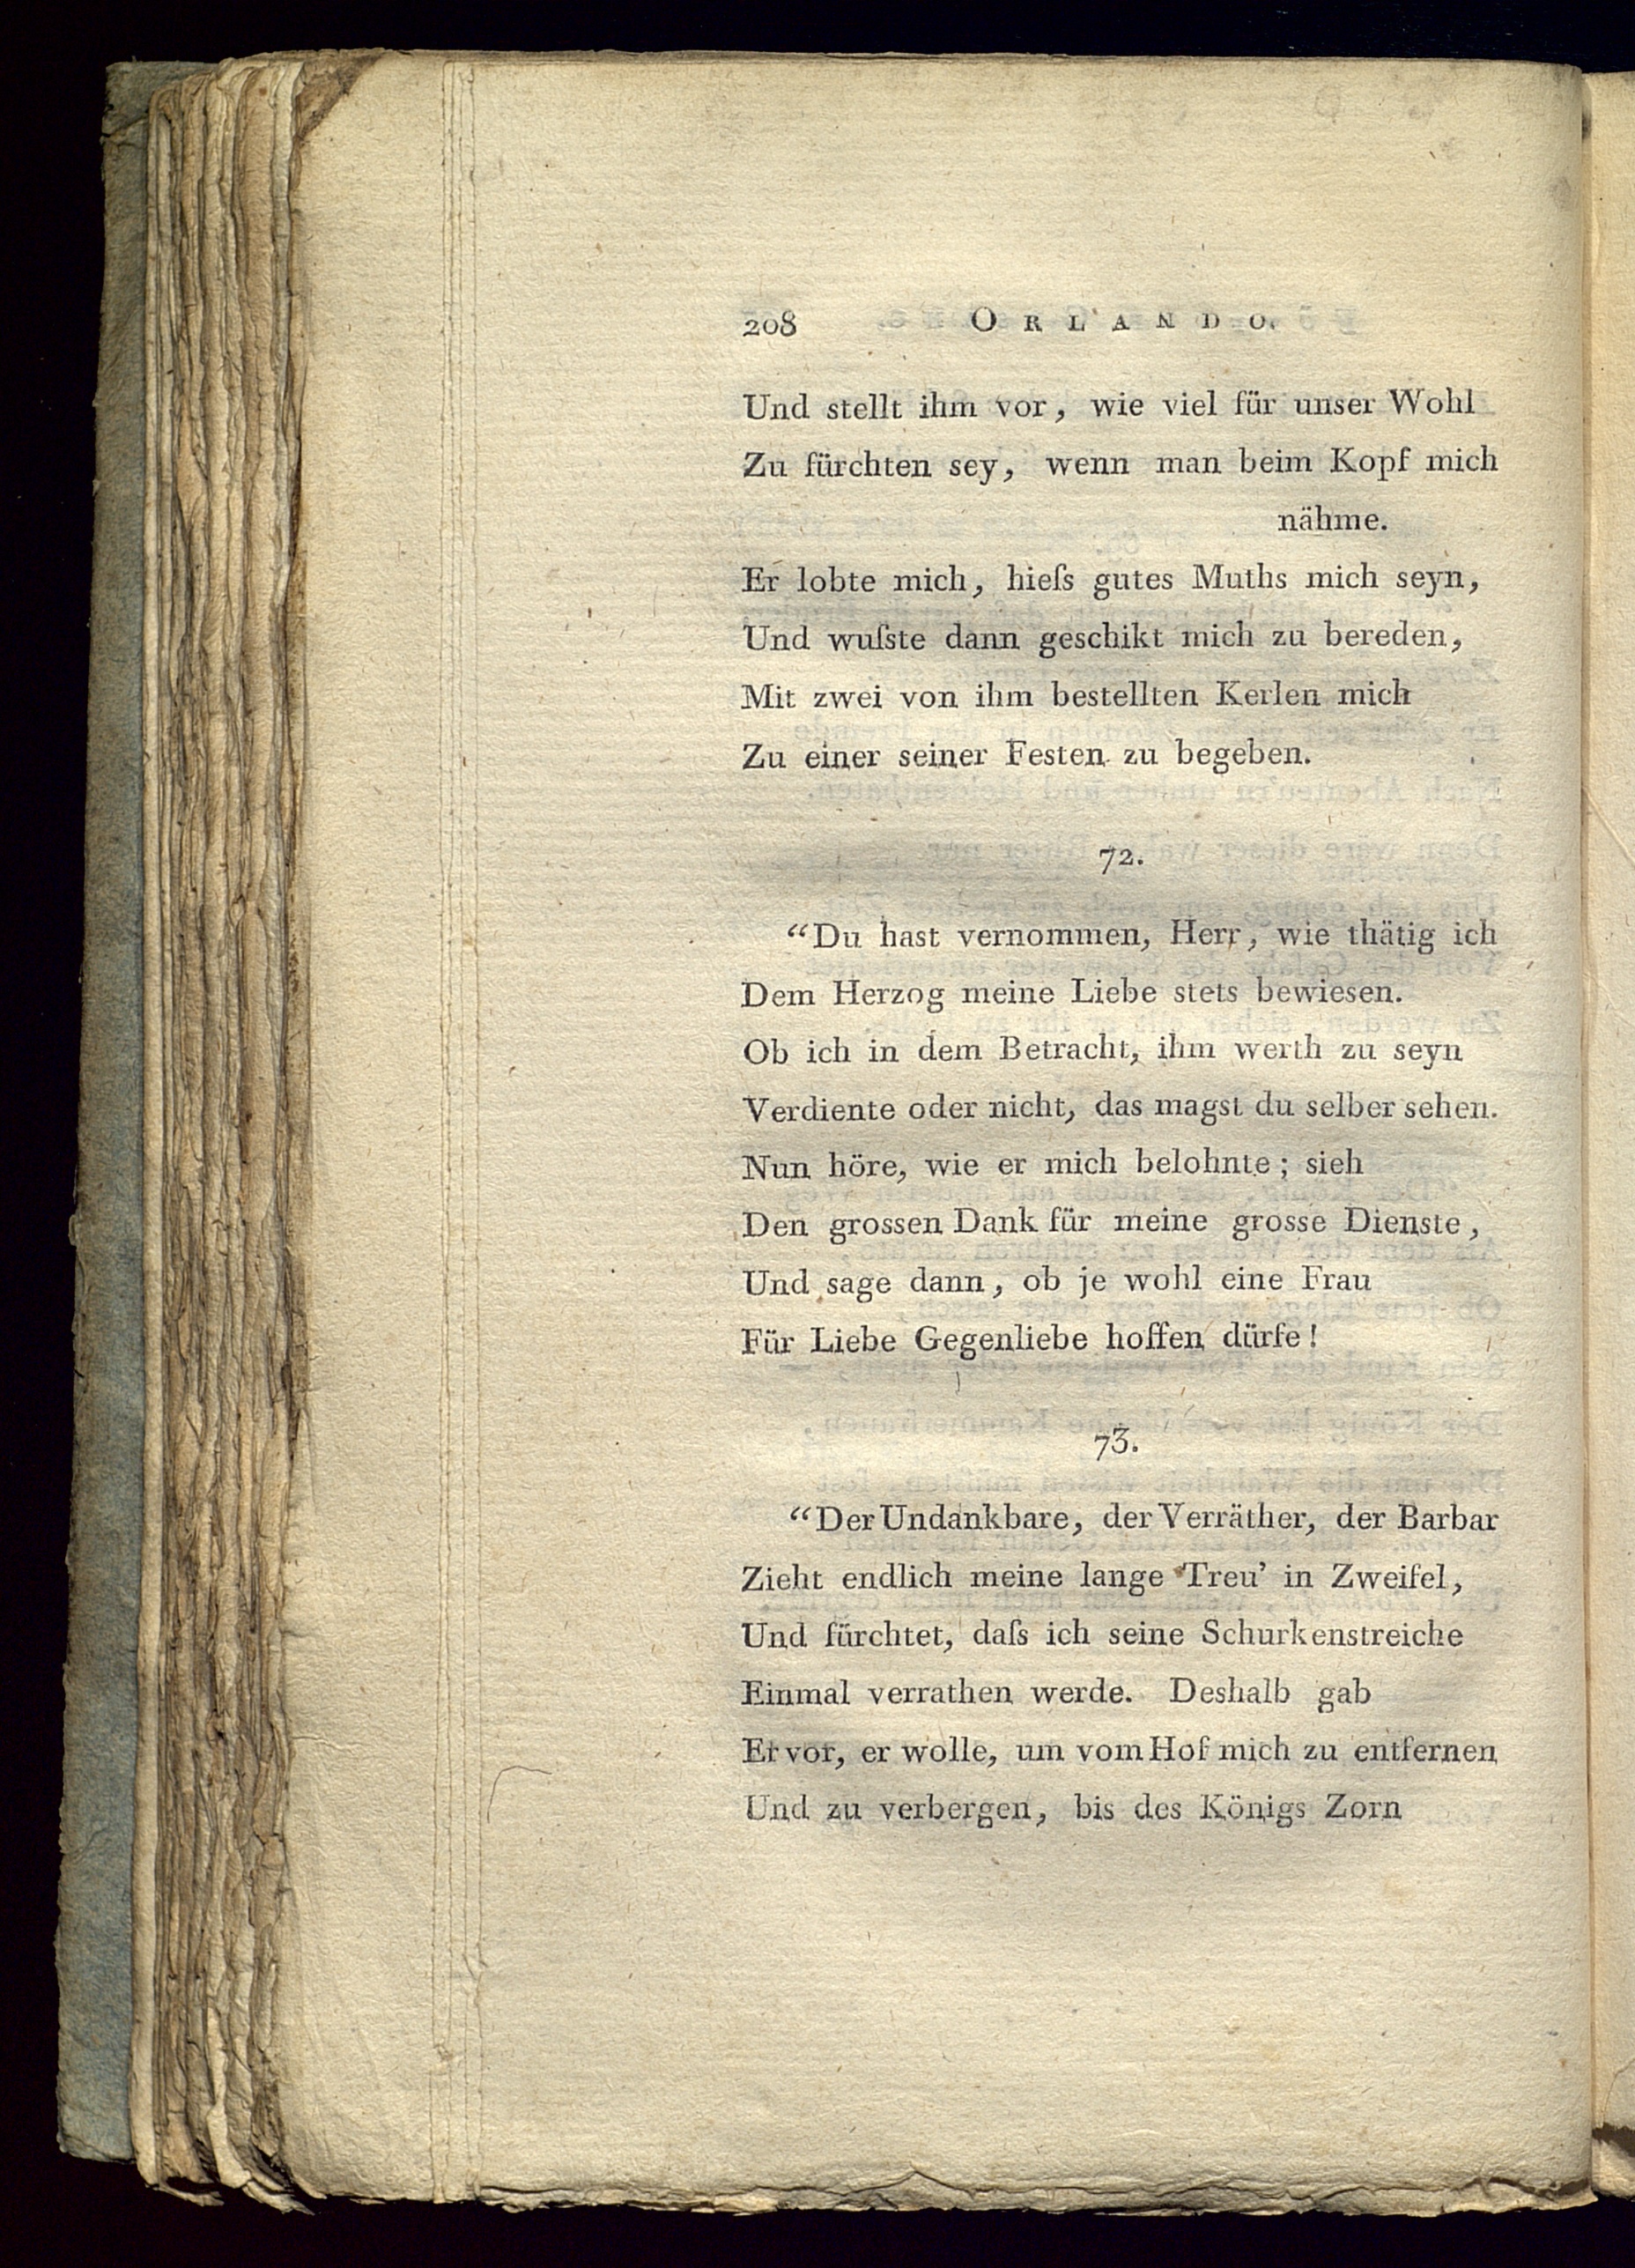 208 ORLANDO.
Und stellt ihm vor, wie viel für unser Wohl
Zu fürchten sey, wenn man beim Kopf mich
nähme.
Er lobte mich, hieſs gutes Muths mich seyn,
Und wuſste dann geschikt mich zu bereden,
Mit zwei von ihm bestellten Kerlen mich
Zu einer seiner Festen zu begeben.
72.
“Du hast vernommen, Herr, wie thätig ich
Dem Herzog meine Liebe stets bewiesen.
Ob ich in dem Betracht, ihm werth zu seyn
Verdiente oder nicht, das magst du selber sehen.
Nun höre, wie er mich belohnte; sieh
Den grossen Dank für meine grosse Dienste,
Und sage dann, ob je wohl eine Frau
Für Liebe Gegenliebe hoffen dürfe!
73.
“Der Undankbare, der Verräther, der Barbar
Zieht endlich meine lange Treu’ in Zweifel,
Und fürchtet, daſs ich seine Schurkenstreiche
Einmal verrathen werde. Deshalb gab
Er vor, er wolle, um vom Hof mich zu entfernen
Und zu verbergen, bis des Königs Zorn